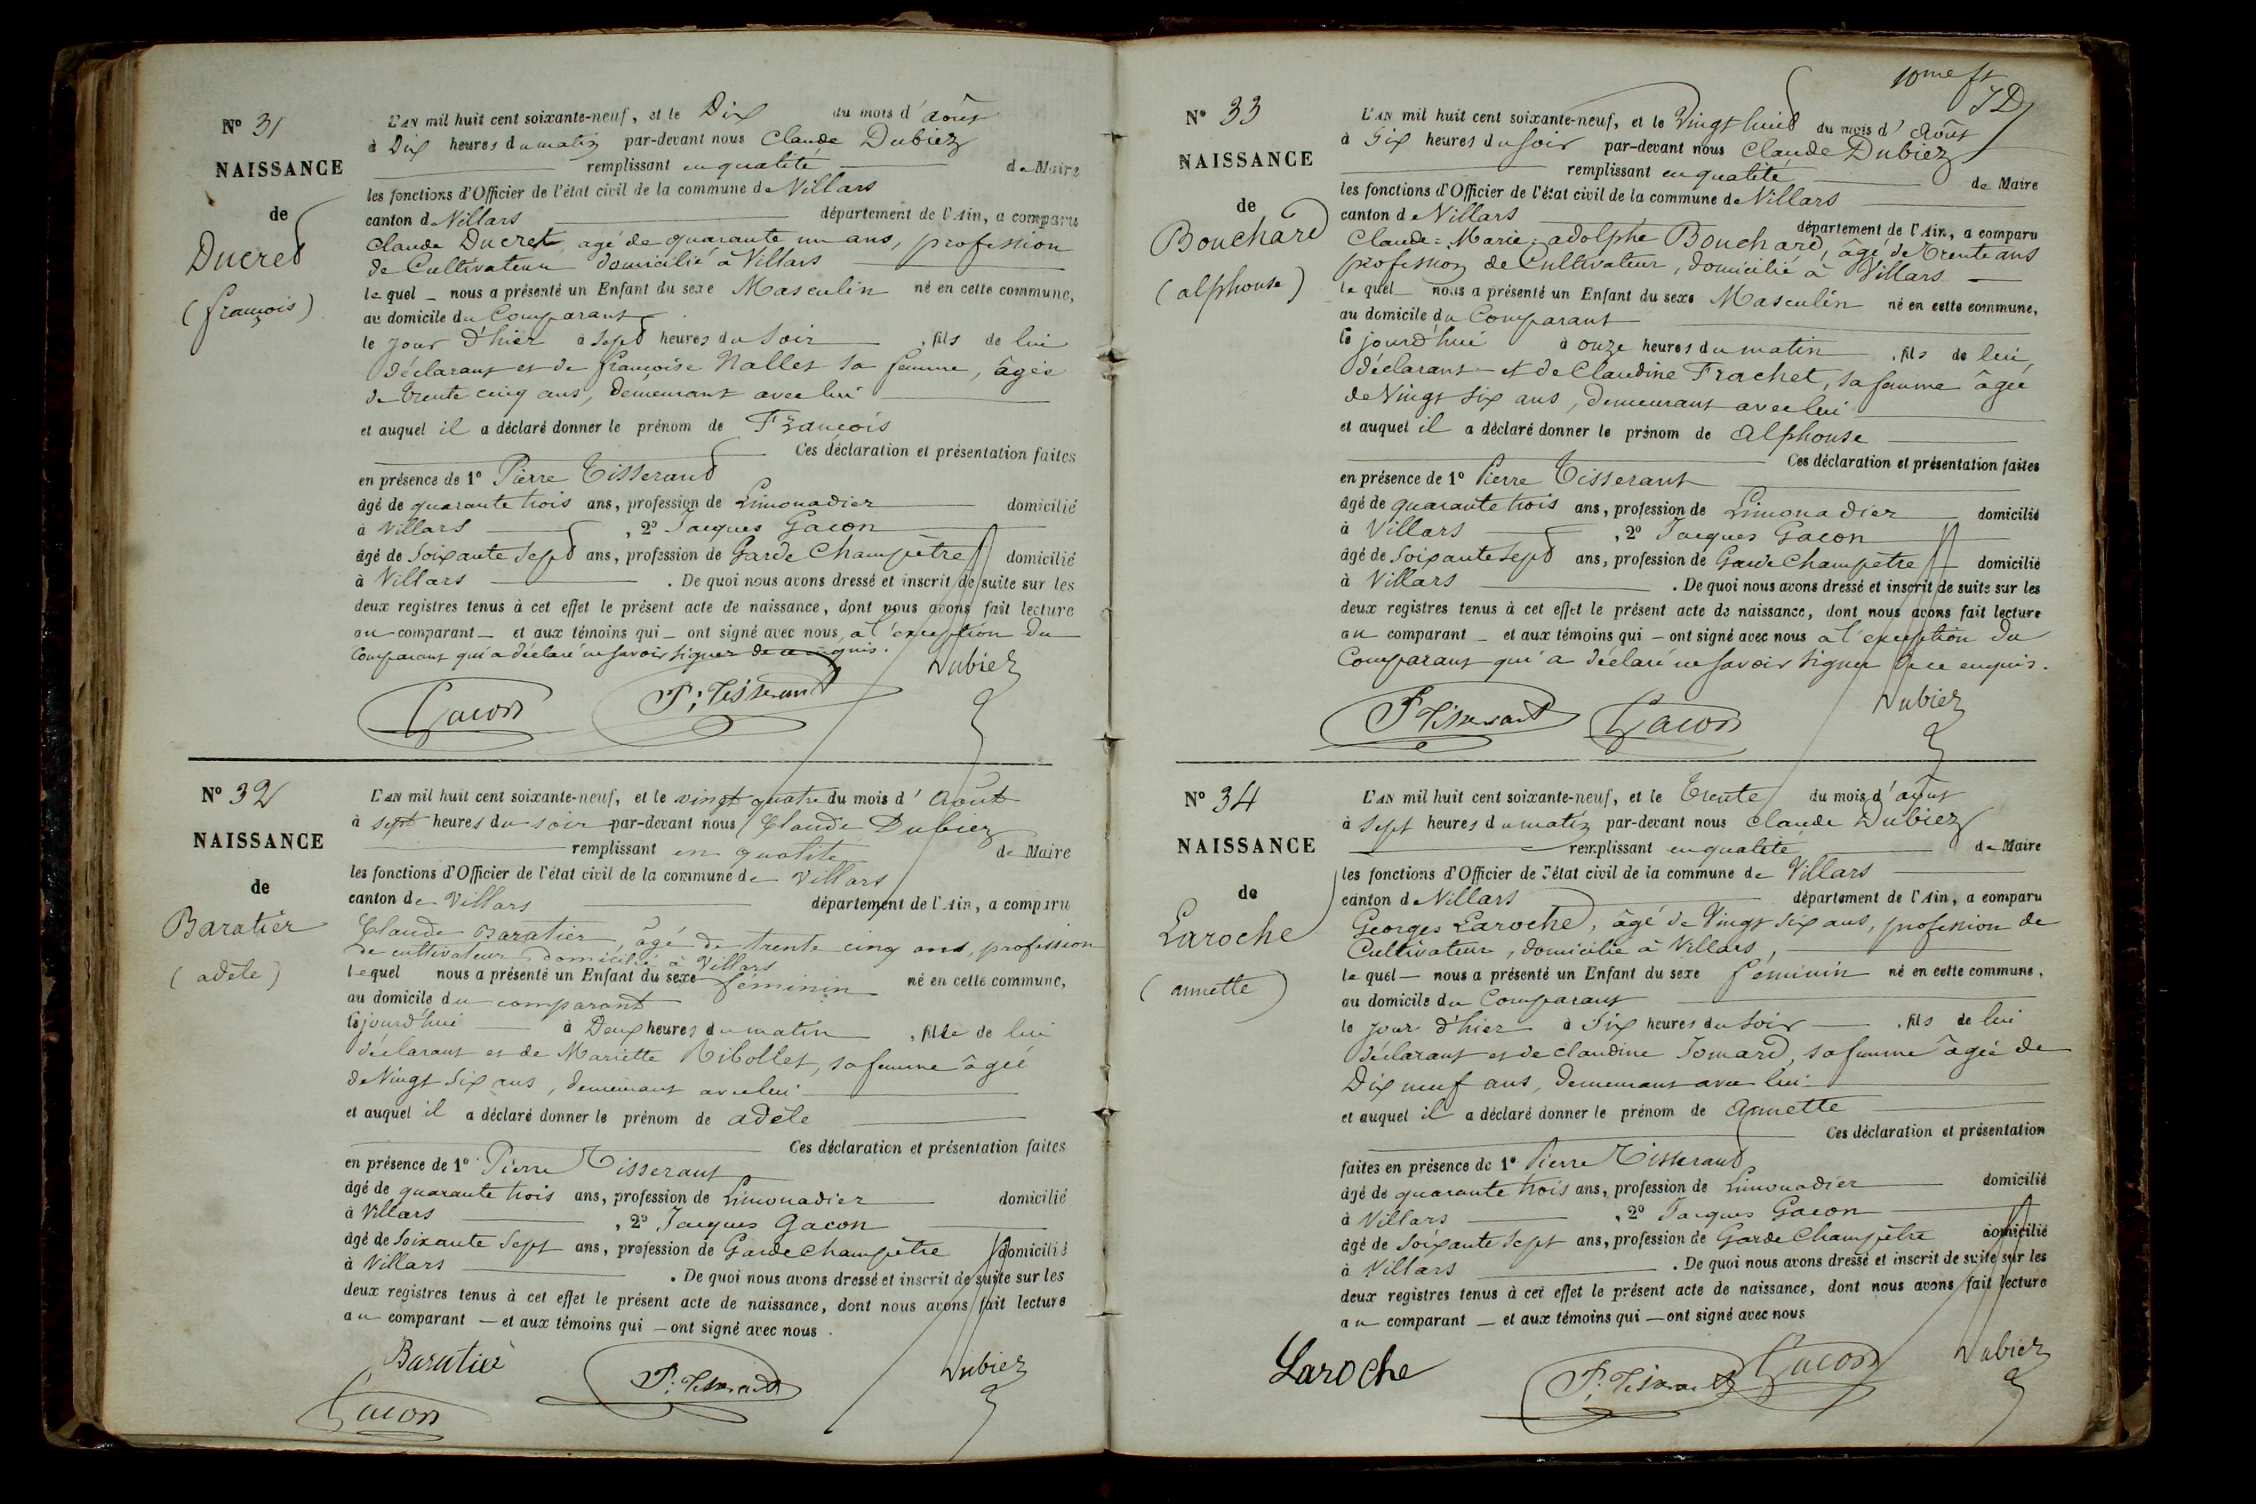 N° 31
NAISSANCE
de
Ducret
(françois)
L'AN mil huit cent soixante-neuf, et le Dix du mois d'août
à Dix heures du matin par-devant nous Claude Dubiez
remplissant en qualité de Maire
les fonctions d'Officier de l'état civil de la commune de Villars
canton de Villars département de l'Ain, a comparu
Claude Ducret, agé de quarante un ans, profession
de Cultivateur domicilié à Villars
lequel nous a présenté un Enfant du sexe Masculin né en cette commune,
au domicile du Comparant
le jour d'hier à sept heures du soir, fils de lui
déclarant et de françoise Nallet sa femme, âgée
de trente cinq ans, demeurant avec lui
et auquel il a déclaré donner le prénom de François
Ces déclaration et présentation faites
en présence de 1° Pierre Tisserand
âgé de quarante trois ans, profession de Limonadier domicilié
à Villars, 2° Jacques Gacon
âgé de soixante sept ans, profession de Garde Champètre domicilié
à Villars. De quoi nous avons dressé et inscrit de suite sur les
deux registres tenus à cet effet le présent acte de naissance, dont nous avons fait lecture
au comparant et aux témoins qui ont signé avec nous, à l'exception du
Comparant qui a déclaré ne savoir signer de ce enquis.
Dubiez
Gacon P. Tisserand
N° 32
NAISSANCE
de
Baratier
(adèle)
L'AN mil huit cent soixante-neuf, et le vingt quatre du mois d'Août
à sept heures du soir par-devant nous Claude Dubiez
remplissant en qualité de Maire
les fonctions d'Officier de l'état civil de la commune de Villars
canton de Villars département de l'Ain, a comparu
Claude Baratier, âgé de trente cinq ans, profession
de cultivateur domicilié à Villars
lequel nous a présenté un Enfant du sexe féminin né en cette commune,
au domicile du comparant
ce jourd'hui à Deux heures du matin, fille de lui
déclarant et de Mariette Ribollet, sa femme âgée
de Vingt six ans, demeurant avec lui
et auquel il a déclaré donner le prénom de adèle
Ces déclaration et présentation faites
en présence de 1° Pierre Tisserant
âgé de quarante trois ans, profession de Limonadier domicilié
à Villars, 2° Jacques Gacon
âgé de Soixante sept ans, profession de Garde Champètre domicilié
à Villars. De quoi nous avons dressé et inscrit de suite sur les
deux registres tenus à cet effet le présent acte de naissance, dont nous avons fait lecture
au comparant et aux témoins qui ont signé avec nous.
Baratier P. Tisserand Dubiez
Gacon
10me ft
N° 33
NAISSANCE
de
Bouchard
(alphonse)
L'AN mil huit cent soixante-neuf, et le Vingt huit du mois d'Août
à Six heures du soir par-devant nous Claude Dubiez
remplissant en qualité de Maire
les fonctions d'Officier de l'état civil de la commune de Villars
canton de Villars département de l'Ain, a comparu
Claude=Marie=adolphe Bouchard, âgé de Trente ans
profession de Cultivateur, domicilié à Villars
lequel nous a présenté un Enfant du sexe Masculin né en cette commune,
au domicile du Comparant
ce jourd'hui à onze heures du matin, fils de lui,
déclarant et de Claudine Frachet, sa femme âgée
de Vingt six ans, demeurant avec lui
et auquel il a déclaré donner le prénom de Alphonse
Ces déclaration et présentation faites
en présence de 1° Pierre Tisserant
âgé de quarante trois ans, profession de Limonadier domicilié
à Villars, 2° Jacques Gacon
âgé de Soixante sept ans, profession de Garde Champètre domicilié
à Villars. De quoi nous avons dressé et inscrit de suite sur les
deux registres tenus à cet effet le présent acte de naissance, dont nous avons fait lecture
au comparant et aux témoins qui ont signé avec nous à l'exception du
Comparant qui a déclaré ne savoir signer de ce enquis.
P Tisserand Gacon Dubiez
N° 34
NAISSANCE
de
Laroche
(annette)
L'AN mil huit cent soixante-neuf, et le Trente du mois d'août
à sept heures du matin par-devant nous Claude Dubiez
remplissant en qualité de Maire
les fonctions d'Officier de l'état civil de la commune de Villars
canton de Villars département de l'Ain, a comparu
Georges Laroche, âgé de Vingt six ans, profession de
Cultivateur, domicilié à Villars,
lequel nous a présenté un Enfant du sexe féminin né en cette commune,
au domicile du Comparant
le jour d'hier à Six heures du soir, fils de lui
déclarant et de Claudine Jomard, sa femme âgée de
Dix neuf ans, demeurant avec lui
et auquel il a déclaré donner le prénom de Annette
Ces déclaration et présentation
faites en présence de 1° Pierre Tisserand
âgé de quarante trois ans, profession de Limonadier domicilié
à Villars, 2° Jacques Gacon
âgé de soixante sept ans, profession de Garde Champètre domicilié
à Villars. De quoi nous avons dressé et inscrit de suite sur les
deux registres tenus à cet effet le présent acte de naissance, dont nous avons fait lecture
au comparant et aux témoins qui ont signé avec nous
Laroche P. Tisserand Gacon Dubiez